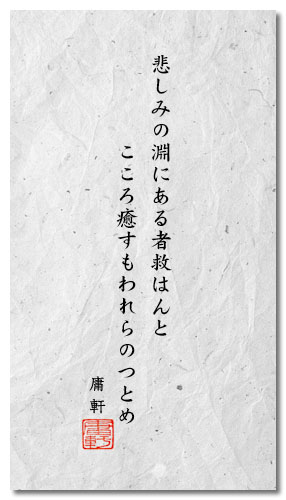 悲しみの淵にある者救はんと
こころ癒すもわれらのつとめ
庸軒